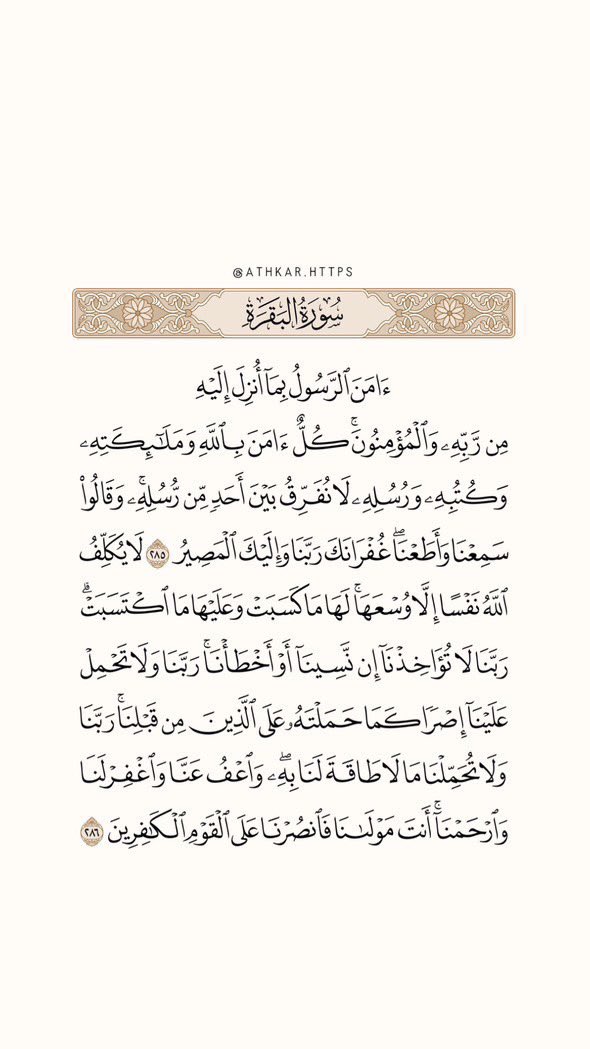 @ATHKAR.HTTPS
سُورَةُ البَقَرَةِ
ءَامَنَ ٱلرَّسُولُ بِمَآ أُنزِلَ إِلَيْهِ
مِن رَّبِّهِۦ وَٱلْمُؤْمِنُونَۚ كُلٌّ ءَامَنَ بِٱللَّهِ وَمَلَـٰٓئِكَتِهِۦ
وَكُتُبِهِۦ وَرُسُلِهِۦ لَا نُفَرِّقُ بَيْنَ أَحَدٍ مِّن رُّسُلِهِۦۚ وَقَالُوا۟
سَمِعْنَا وَأَطَعْنَاۖ غُفْرَانَكَ رَبَّنَا وَإِلَيْكَ ٱلْمَصِيرُ ٢٨٥ لَا يُكَلِّفُ
ٱللَّهُ نَفْسًا إِلَّا وُسْعَهَاۚ لَهَا مَا كَسَبَتْ وَعَلَيْهَا مَا ٱكْتَسَبَتْۗ
رَبَّنَا لَا تُؤَاخِذْنَآ إِن نَّسِينَآ أَوْ أَخْطَأْنَاۚ رَبَّنَا وَلَا تَحْمِلْ
عَلَيْنَآ إِصْرًا كَمَا حَمَلْتَهُۥ عَلَى ٱلَّذِينَ مِن قَبْلِنَاۚ رَبَّنَا
وَلَا تُحَمِّلْنَا مَا لَا طَاقَةَ لَنَا بِهِۦۖ وَٱعْفُ عَنَّا وَٱغْفِرْ لَنَا
وَٱرْحَمْنَآۚ أَنتَ مَوْلَىٰنَا فَٱنصُرْنَا عَلَى ٱلْقَوْمِ ٱلْكَـٰفِرِينَ ٢٨٦